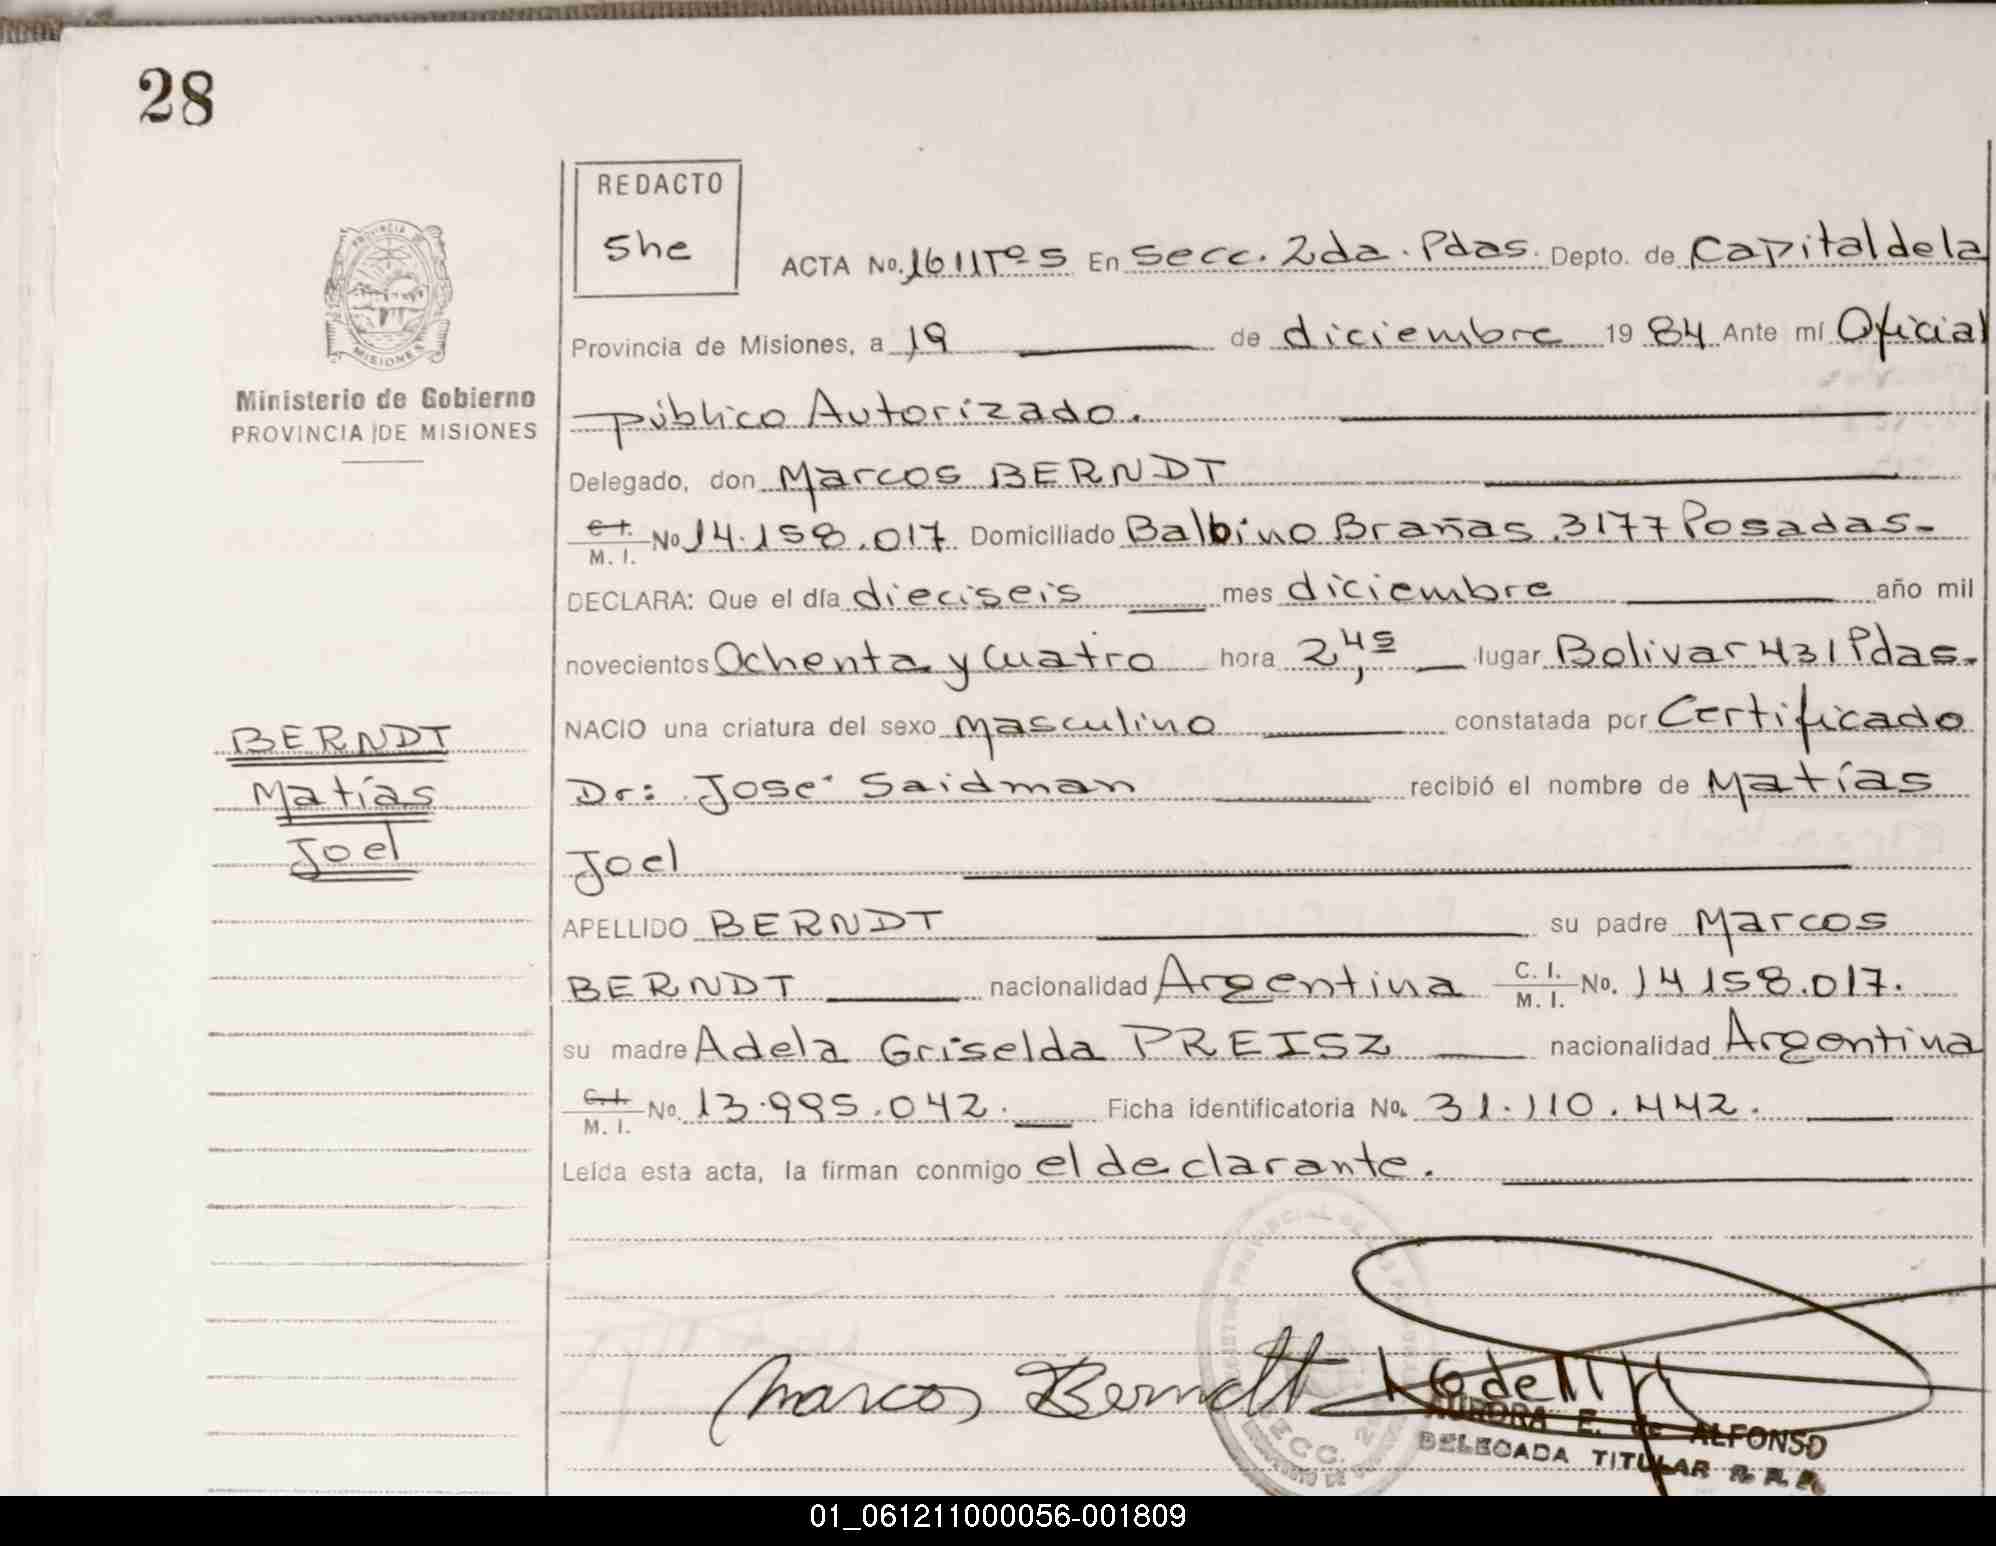 28
REDACTO
She
ACTA No. 1611Tº5 En Secc. 2da. Pdas. Depto. de Capital de la
Provincia de Misiones, a 19 de diciembre 1984 Ante mí Oficial
Público Autorizado.
PROVINCIA DE
MISIONES
Ministerio de Gobierno
PROVINCIA DE MISIONES
Delegado, don Marcos BERNDT
C.I. M.I. No 14.158.017 Domiciliado Balbino Brañas 3177 Posadas.
DECLARA: Que el día dieciseis mes diciembre año mil
novecientos Ochenta y Cuatro hora 2,45 lugar Bolivar 431 Pdas.
NACIO una criatura del sexo Masculino constatada por Certificado
Dr: José Saidman recibió el nombre de Matías
Joel
BERNDT
Matías
Joel
APELLIDO BERNDT su padre Marcos
BERNDT nacionalidad Argentina C.I. M.I. No. 14158.017.
su madre Adela Griselda PREISZ nacionalidad Argentina
C.I. M.I. No. 13.995.042. Ficha identificatoria No. 31.110.442.
Leída esta acta, la firman conmigo el declarante.
Marcos Berndt
AURORA E. de ALFONSO
DELEGADA TITULAR R. P. P.
01_061211000056-001809